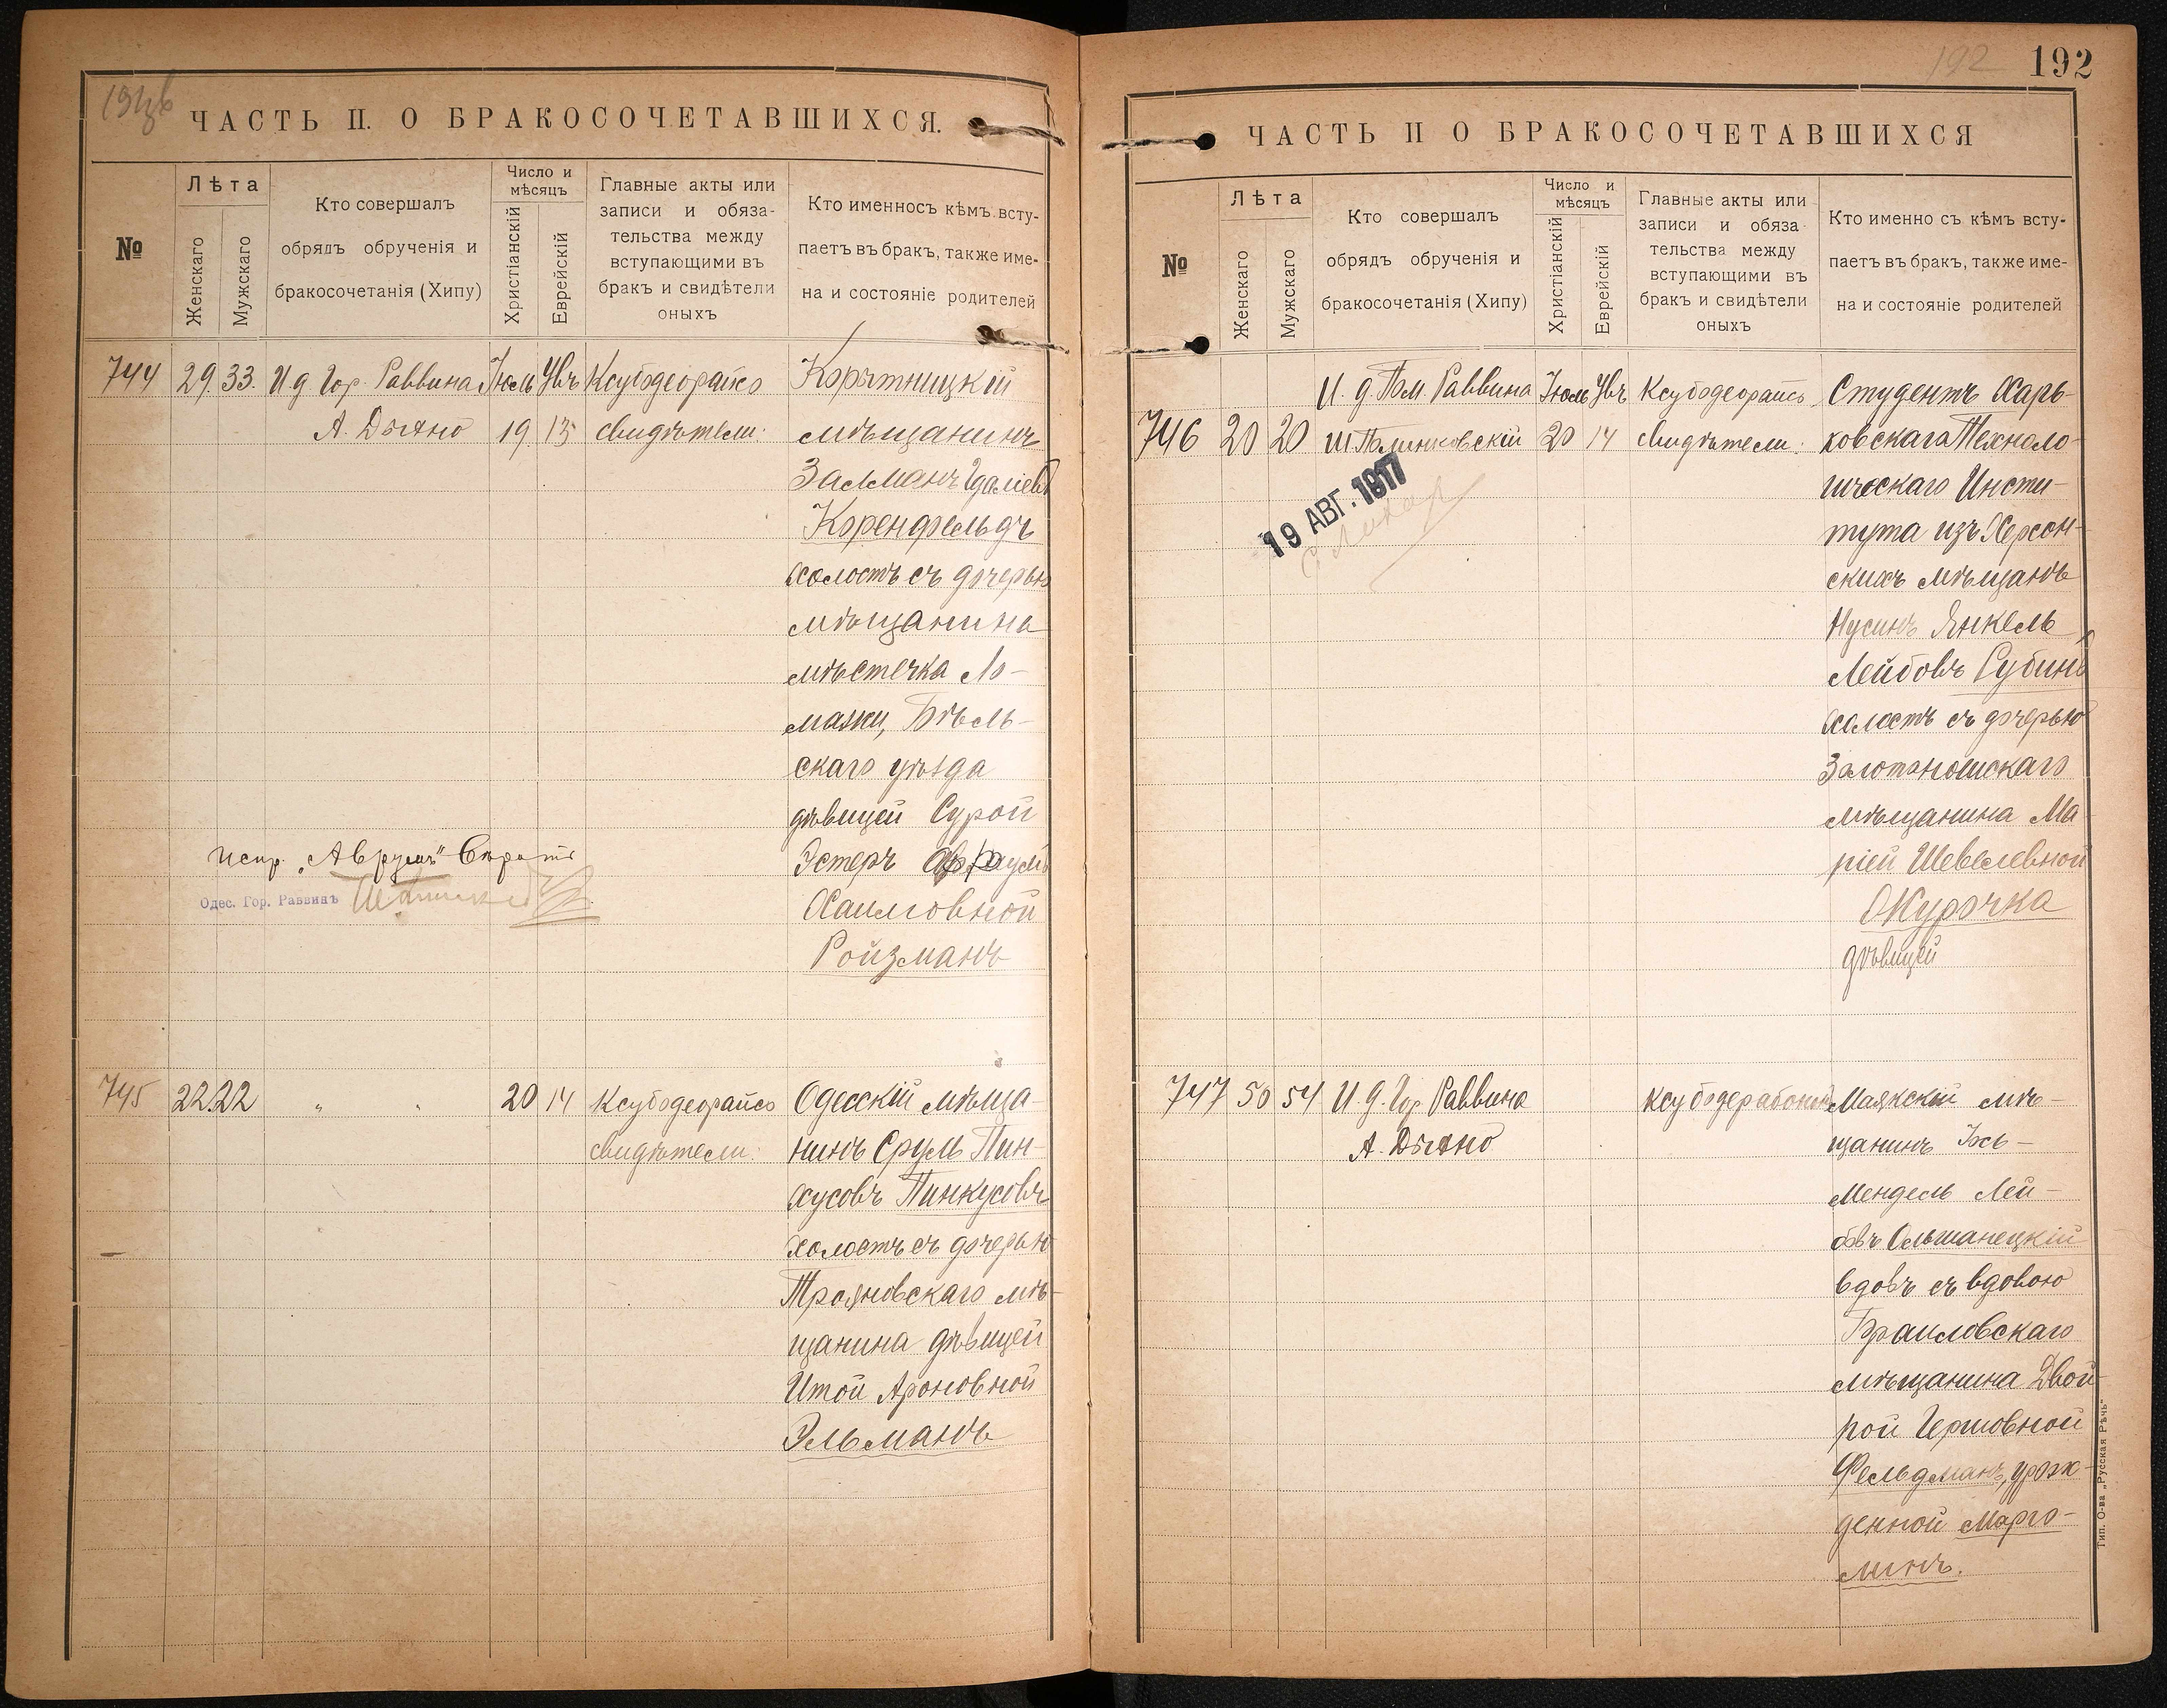 ЧАСТЬ II. О БРАКОСОЧЕТАВШИХСЯ.
№
Лѣта
Женскаго
Мужскаго
Кто совершалъ
обрядъ обрученія и
бракосочетанія (Хипу)
Число и
мѣсяцъ
Христіанскій
Еврейскій
Главные акты или
записи и обяза-
тельства между
вступающими въ
бракъ и свидѣтели
оныхъ
Кто именносъ кѣмъ всту-
паетъ въ бракъ, также име-
на и состояніе родителей
744 29. 33. И д Гор. Раввина Іюль Увъ Ксубодеорайсо
А. Дыхно 19. 13 свидѣтели:
Корытницкій
мѣщанинъ
Залманъ Гдаліевъ
Коренфельдъ
холостъ съ дочерью
мѣщанина
мѣстечка Ло-
мазы, Бѣль-
скаго уѣзда
дѣвицей Сурой
Эстеръ
Хаимовной
Ройзманъ
испр. „Аврумъ“ Вѣрить
Одес. Гор. Раввинъ
745 22 22 " " 20 14 Ксубодеорайсо
свидѣтели:
Одесскій мѣща-
нинъ Сруль Пин-
хусовъ Пинкусовъ
холостъ съ дочерью
Трояновскаго мѣ-
щанина дѣвицей
Итой Ароновной
Эльманъ
192
192
ЧАСТЬ II О БРАКОСОЧЕТАВШИХСЯ
№
Лѣта
Женскаго
Мужскаго
Кто совершалъ
обрядъ обрученія и
бракосочетанія (Хипу)
Число и
мѣсяцъ
Христіанскій
Еврейскій
Главные акты или
записи и обяза
тельства между
вступающими въ
бракъ и свидѣтели
оныхъ
Кто именно съ кѣмъ всту-
паетъ въ бракъ, также име-
на и состояніе родителей
И. д. Пом. Раввина Іюль Увъ Ксубодеорайсо
746 20 20 20 14 свидѣтели:
19 АВГ. 1917
Студентъ Харь-
ковскаго Техноло-
гическаго Инсти-
тута изъ Херсон-
скихъ мѣщанъ
Нусинъ Янкель
Лейбовъ Рубинъ
холостъ съ дочерью
Золотоношскаго
мѣщанина Ма
ріей Шевелевной
Окурочка
дѣвицей
747 50 54 И. д. Гор Раввина
А. Дыхно
Маякскій мѣ-
щанинъ Іось-
Мендель Лей-
бовъ Ольшанецкій
вдовъ съ вдовою
Браиловскаго
мѣщанина Двой-
рой Гершовной
Фельдманъ, урож-
денной Марго-
линъ.
Тип. О-ва „Русская Рѣчь“